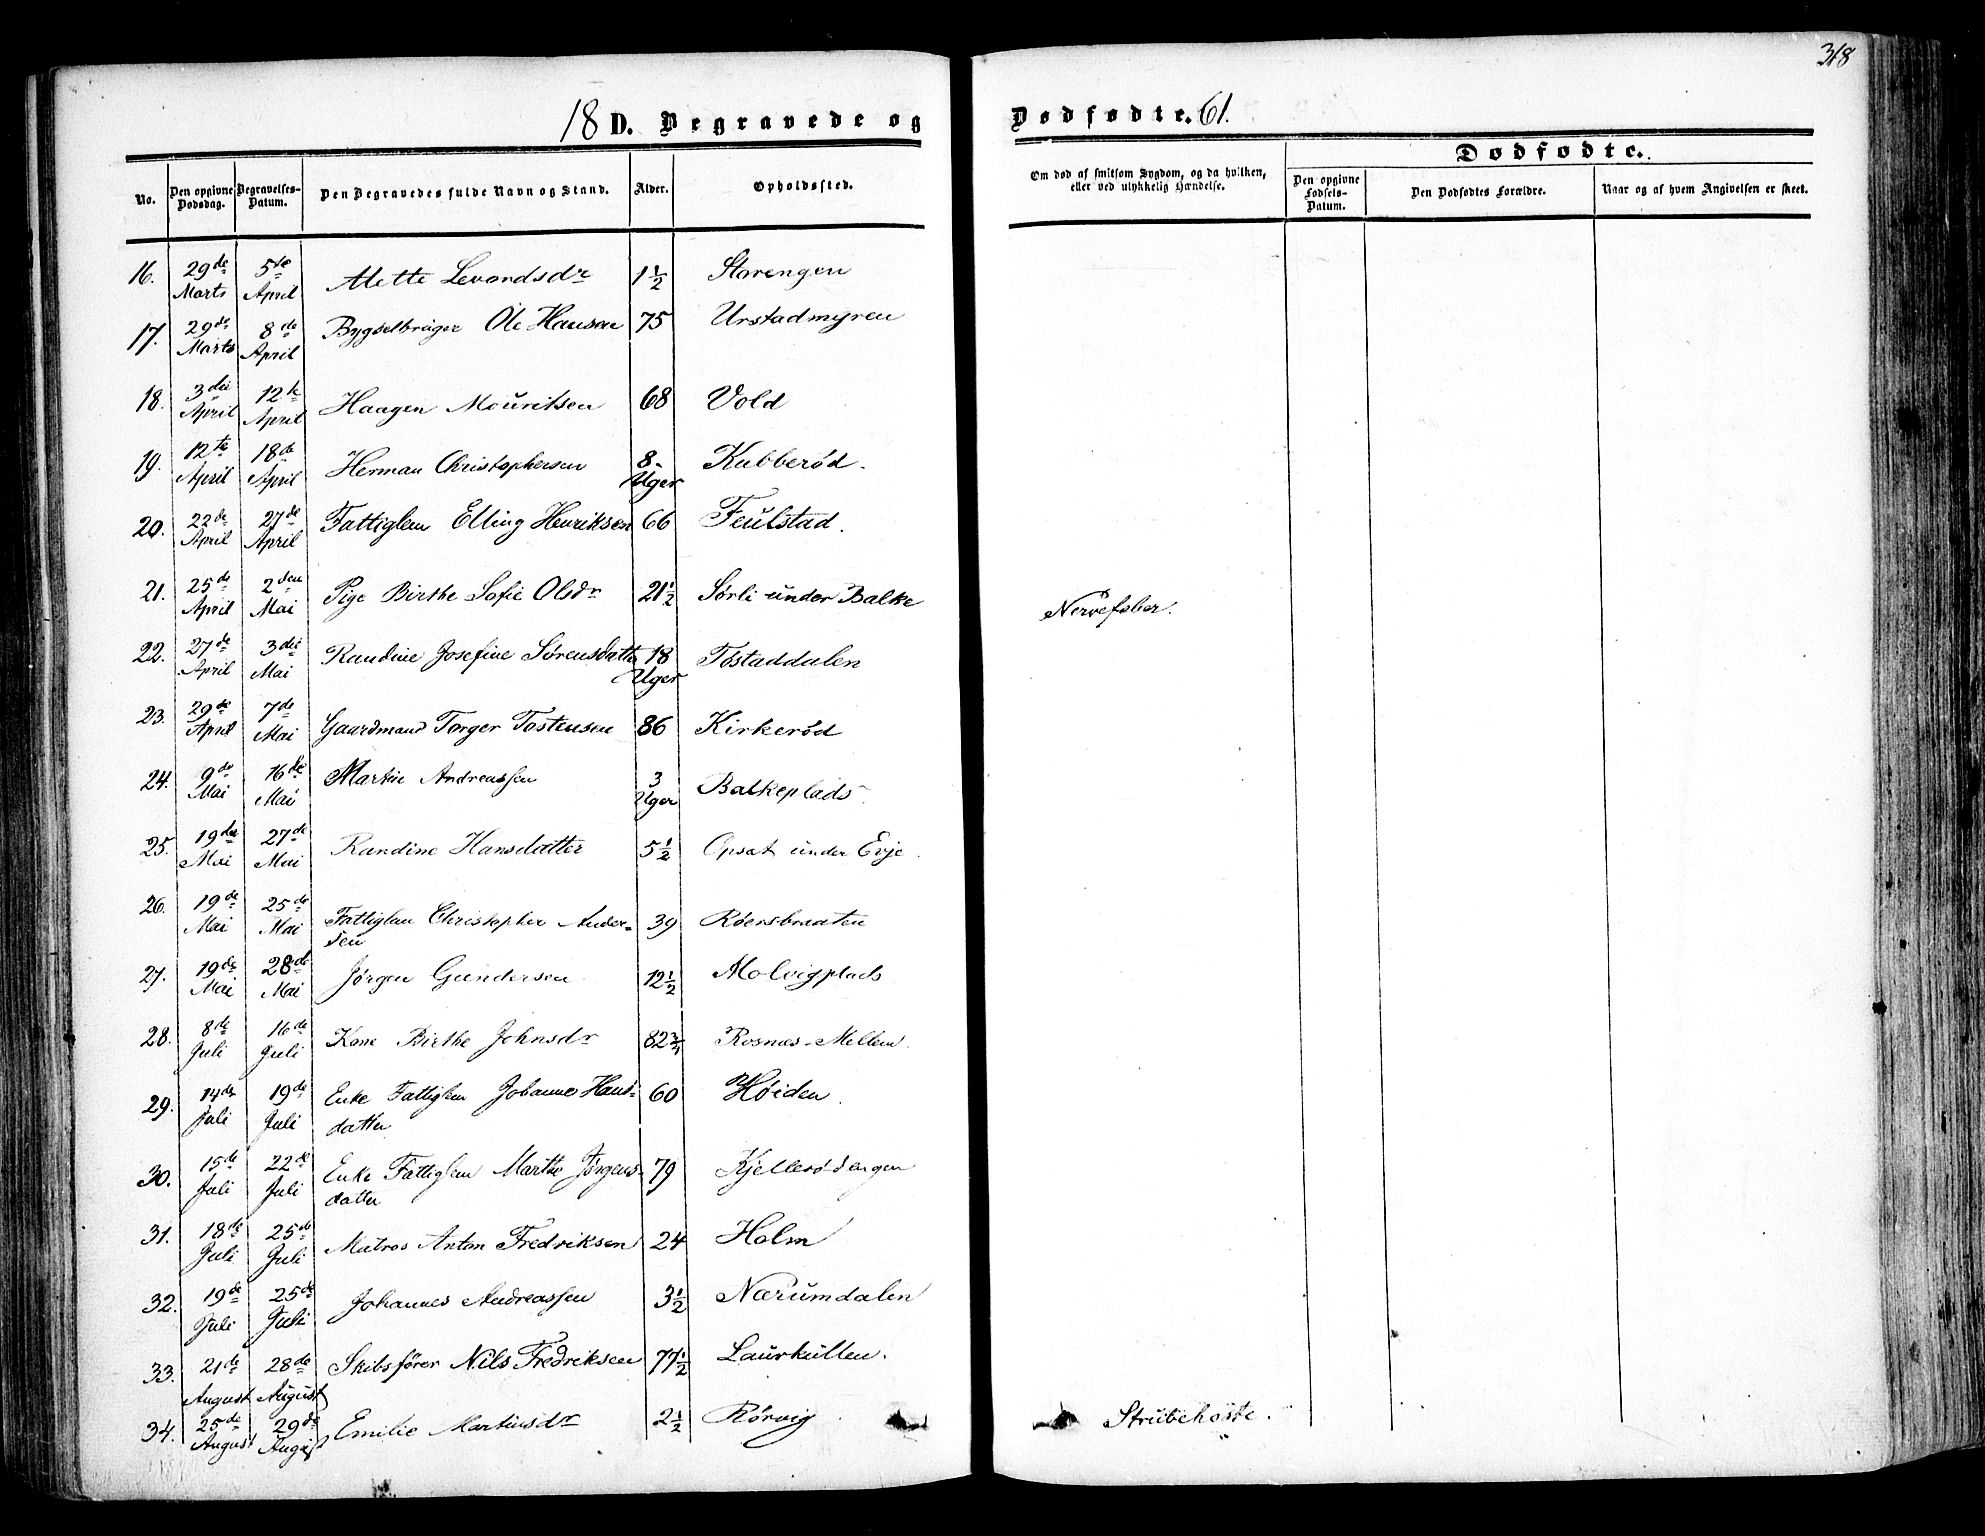 318
18 D. Begravede og Dødfødte. 61.
No. Den opgivne Dødsdag. Begravelses-Datum. Den Begravedes fulde Navn og Stand. Alder. Opholdssted. Om død af smitsom Sygdom, og da hvilken, eller ved ulykkelig Hændelse. Dødfødte. Den opgivne Fødsels-Datum. Den Dødfødtes Forældre. Naar og af hvem Angivelsen er skeet.
16. 29de Marts 5te April Mette Levordsdr 1 1/2 Storengen
17. 29de Marts 8de April Ole Hansen 75 Urstadmyren
18. 3die April 12te April Haagen Mouritsen 68 Vold
19. 12te April 18de April Herman Christophersen 8 Uger Kubberød.
20. 22de April 27de April Fattiglem Elling Henriksen 66 Feulstad.
21. 25de April 2den Mai Pige Birthe Sofie Olsdr 21 1/2 Sørli under Balke Nervefeber.
22. 27de April 3die Mai Randine Josefine Sørensdatter 18 Uger Tøstaddalen
23. 29de April 7de Mai Gaardmand Torger Tostensen 86 Kirkerød
24. 9de Mai 16de Mai Martin Andreassen 3 Uger Balkeplads
25. 19de Mai 27de Mai Randine Hansdatter 5 1/2 Opsat under Evje.
26. 19de Mai 25de Mai Fattiglem Christopher Ander-
sen 39 Røersbraaten
27. 19de Mai 28de Mai Jørgen Gundersen 12 1/2 Molvigplads
28. 8de Juli 16de Juli Kone Birthe Johnsdr 82 3/4 Rosnæs-Mellem.
29. 14de Juli 19de Juli Enke Fattiglem Johanne Hans-
datter 60 Høiden.
30. 15de Juli 22de Juli Enke Fattiglem Marthe Jørgens-
datter 79 Kjellerødengen
31. 18de Juli 25de Juli Matros Anton Fredriksen 24 Holm
32. 19de Juli 25de Juli Johannes Andreassen 3 1/2 Nærumdalen
33. 21de August 28de August Skibsfører Nils Fredriksen 77 1/2 Laurkullen.
34. 25de August 29de August Emilie Martinsdr 2 1/2 Rørvig Strubehoste.